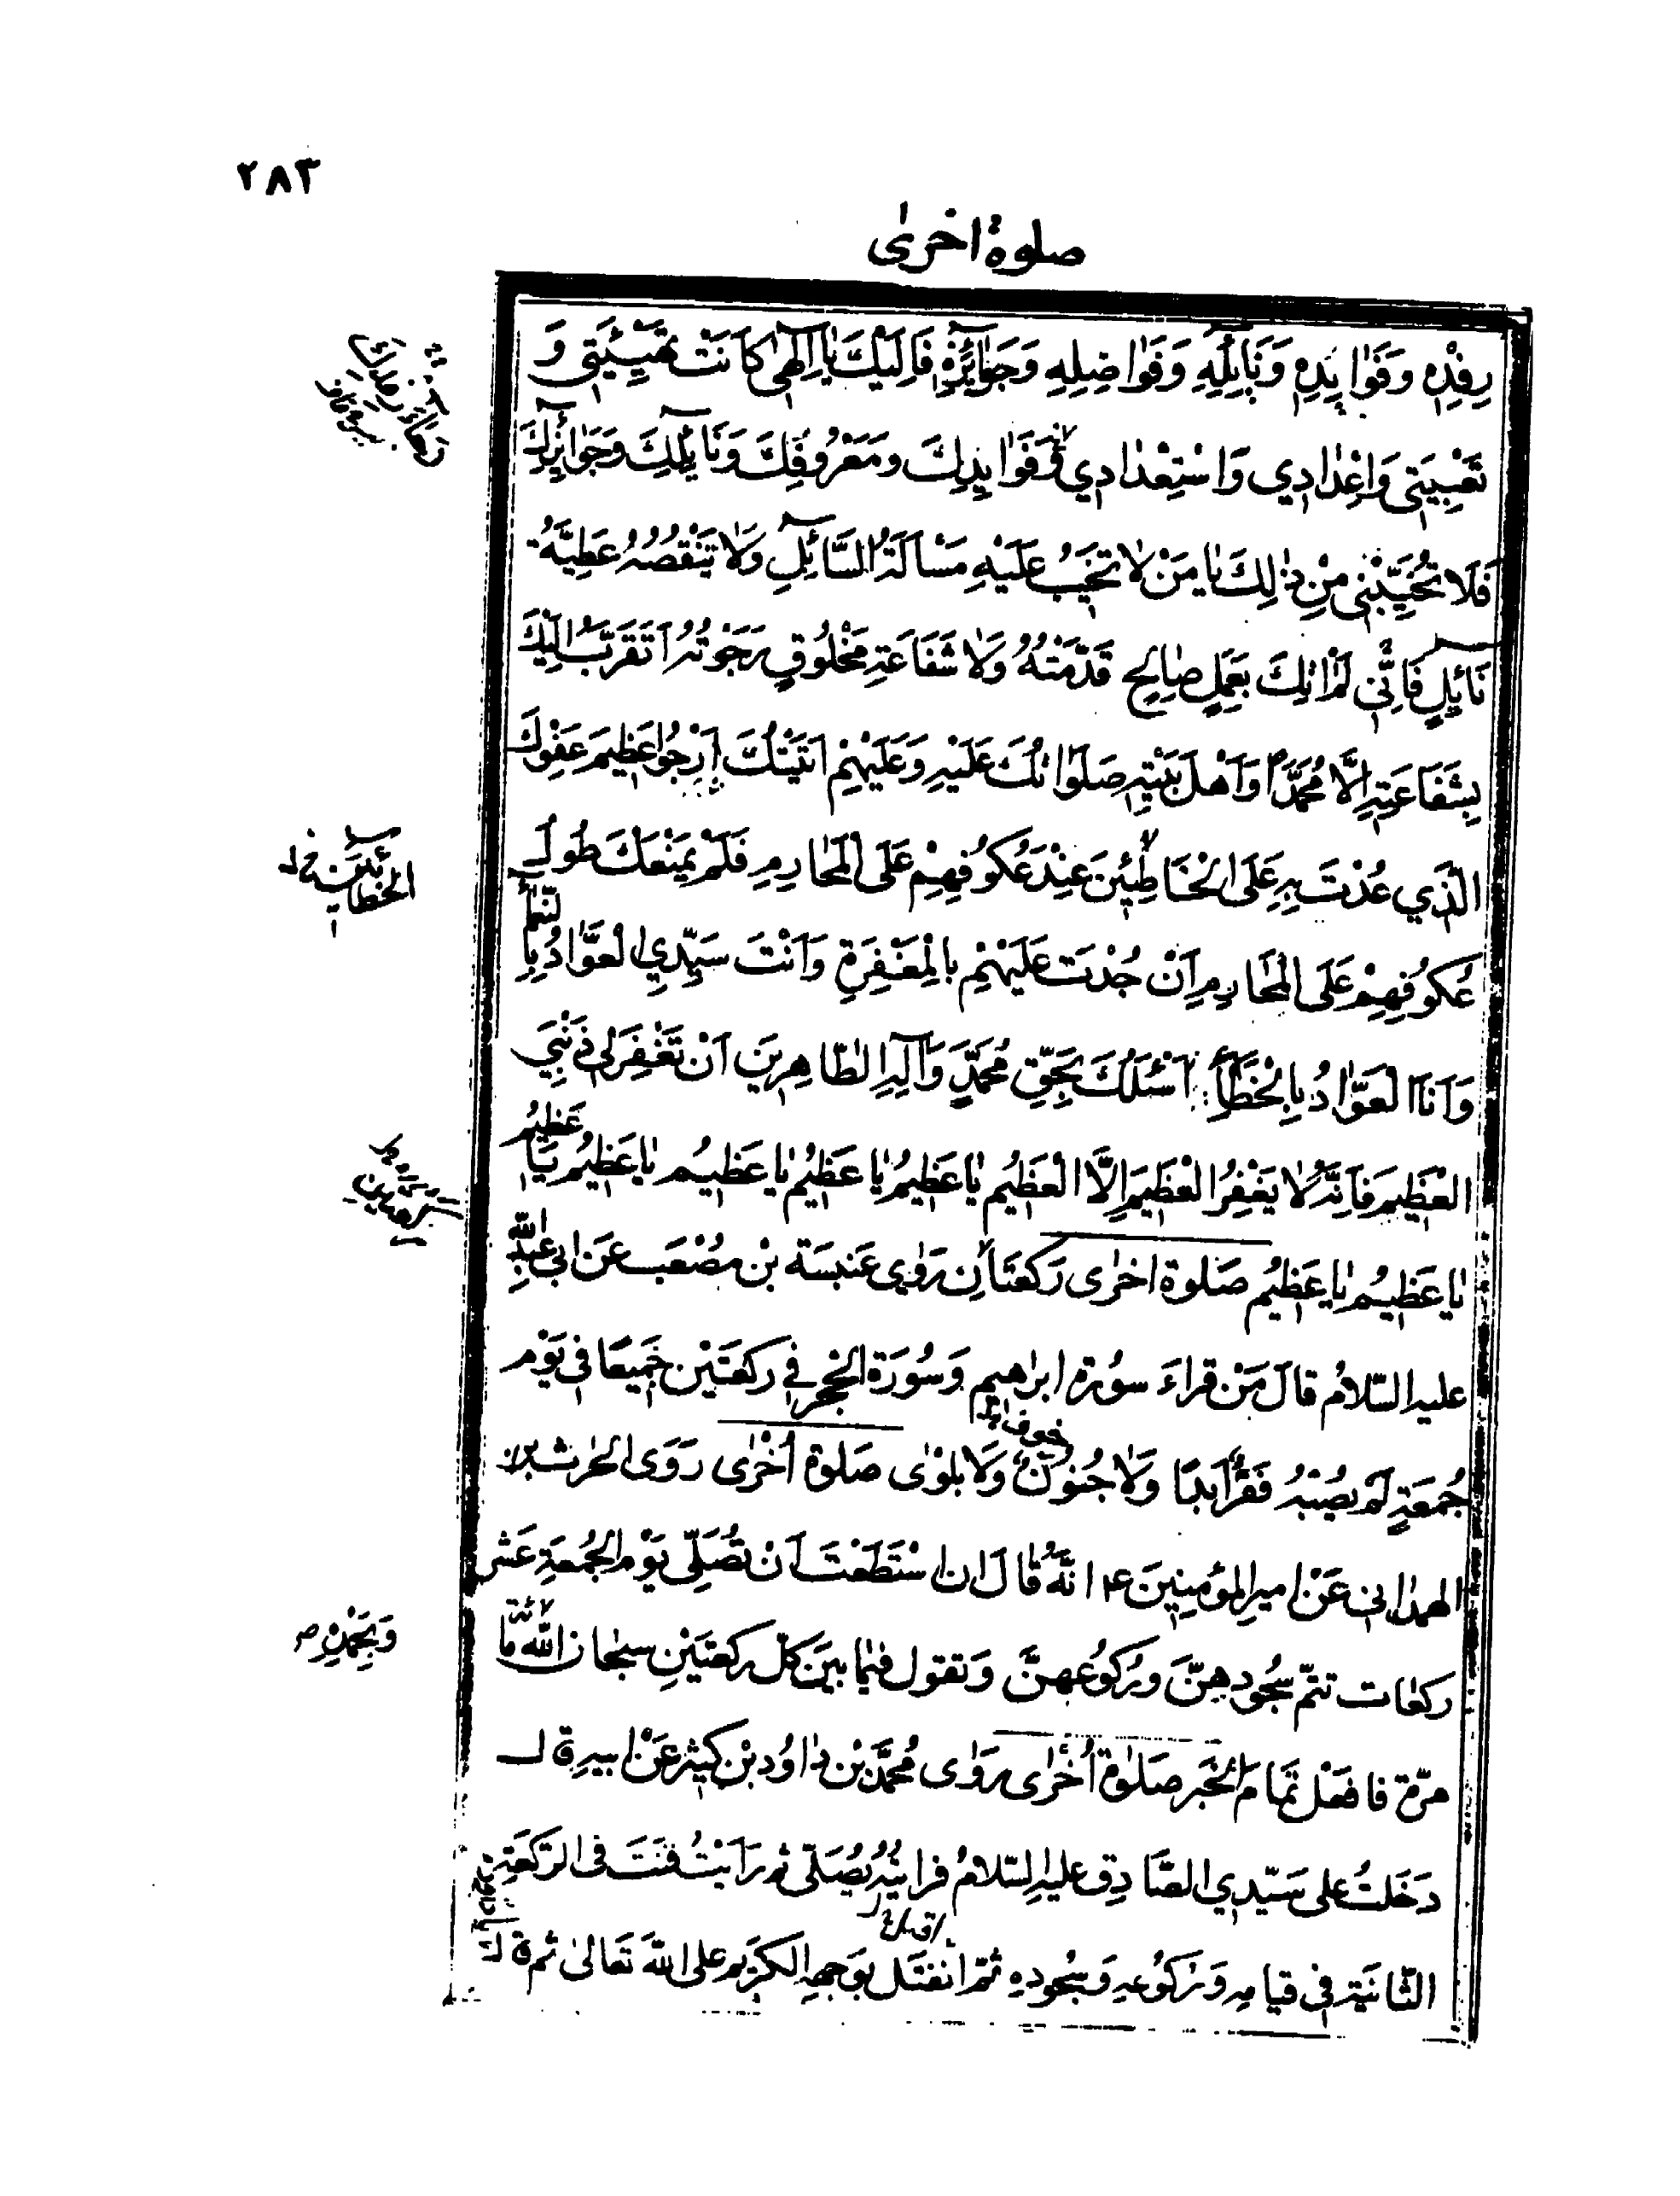 ٢٨٣
صلوة اخرى
رِفْدِهِ وَفَوٰائِدِهِ وَنَائِلِهِ وَفَوٰاضِلِهِ وَجَوٰائِزِهِ فَاِلَيْكَ يٰا اِلٰهي كٰانَتْ تَهْيِئَتِى وَ
تَعْبِيَتِى وَاِعْدٰادِي وَاسْتِعْدٰادِي وَفَوٰايِدِكَ وَمَعْرُوفِكَ وَنَائِلِكَ وَجَوٰائِزِكَ
فَلَا تُخَيِّبْنِى مِنْ ذٰلِكَ يٰا مَنْ لٰا تَخِيبُ عَلَيْهِ مَسْاَلَةُ السَّائِلِ وَلٰا تَنْقُصُهُ عَطِيَّةُ
نَائِلٍ فَاِنِّى لَمْ اٰتِكَ بِعَمَلٍ صٰالِحٍ قَدَّمْتُهُ وَلٰا شَفَاعَةِ مَخْلُوقٍ رَجَوْتُهُ اَتَقَرَّبُ اِلَيْكَ
بِشَفَاعَتِهِ اِلَّا مُحَمَّدًا وَاَهْلَ بَيْتِهِ صَلَوٰاتُكَ عَلَيْهِ وَعَلَيْهِمْ اَتَيْتُكَ اَرْجُوا عَظِيمَ عَفْوِكَ
الَّذي عُدْتَ بِهِ عَلَى الْخَاطِئِينَ عِنْدَ عُكُوفِهِمْ عَلَى الْمَحٰارِمِ فَلَمْ يَمْنَعْكَ طُولُ
الخطائين خ ل
عُكُوفِهِمْ عَلَى الْمَحٰارِمِ اَنْ جُدْتَ عَلَيْهِمْ بِالْمَغْفِرَةِ وَاَنْتَ سَيِّدِي الْعَوَّادُ بِالنَّعْمٰاءِ
وَاَنَا الْعَوَّادُ بِالْخَطَأِ اَسْئَلُكَ بِحَقِّ مُحَمَّدٍ وَآلِهِ الطّاهِرِينَ اَنْ تَغْفِرَ لِي ذَنْبِيَ
الْعَظِيمَ فَاِنَّهُ لٰا يَغْفِرُ الْعَظِيمَ اِلَّا الْعَظِيمُ يٰا عَظِيمُ يٰا عَظِيمُ يٰا عَظِيمُ يٰا عَظِيمُ يٰا عَظِيمُ
يٰا عَظِيمُ يٰا عَظِيمُ صَلوة اخرٰى رَكعَتَانِ رَوٰى عَنبسَة بْن مصْعَب عَن ابى عَبْدِ اللّٰه
عليه السّلامُ قالَ مَنْ قراءَ سوُرة ابرٰهيم وَسُورَة الحِجْر في ركعَتَيْن جَميعًا في يَوْم
خوف
جُمعَةٍ لَمْ يُصِبْهُ فَقْرٌ اَبَدًا وَلٰا جُنُونٌ وَلٰا بَلوٰى صَلوة اُخْرٰى رَوَى الحٰرث بن
الهمدٰانى عَنْ امير المؤمِنِينَ ع انَّهُ قٰالَ ان اسْتَطَعْتَ اَنْ تُصَلِّى يَوْم الجُمعَةِ عَشر
ركعٰات تتمّ سُجُودهِنَّ وركُوُعهنَّ وَتقول فيمٰا بينَ كلّ ركعتيْن سبحٰان اللّٰه مائة
وَبِحَمْدِهِ ص
مرّة فافعَل تمٰام الخَبر صَلوٰة اُخْرٰى رَوٰى مُحَمَّد بْن دٰاوُد بْن كثير عَنْ ابيه قال
دَخَلتُ على سَيّدي الصّادِق عليه السّلامُ فرايتُهُ يُصَلّى ثم رَاَيْتُ قنَتَ في الركعَةِ
الثّانيَة في قيامِهِ وَرُكوُعِهِ وَسُجُودِهِ ثمّ انفتَل بوَجههِ الكريم على اللّٰه تَعالىٰ ثم قال